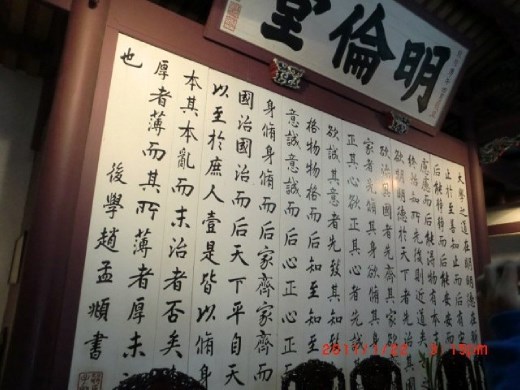 明倫堂
大學之道在明明德在
止於至善知止而后有
后能靜靜而后能安安而
慮慮而后能得物有本
終始知所先後則近道矣
欲明明德於天下者先治
欲治其國者先齊其家
家者先脩其身欲脩其
正其心欲正其心者先
欲誠其意者先致其知
格物物格而后知至知至
意誠意誠而后心正心正
身脩身脩而后家齊家齊而
國治國治而后天下平自天
以至於庶人壹是皆以脩身
本其本亂而末治者否矣
厚者薄而其所薄者厚未
也
後學趙孟頫書